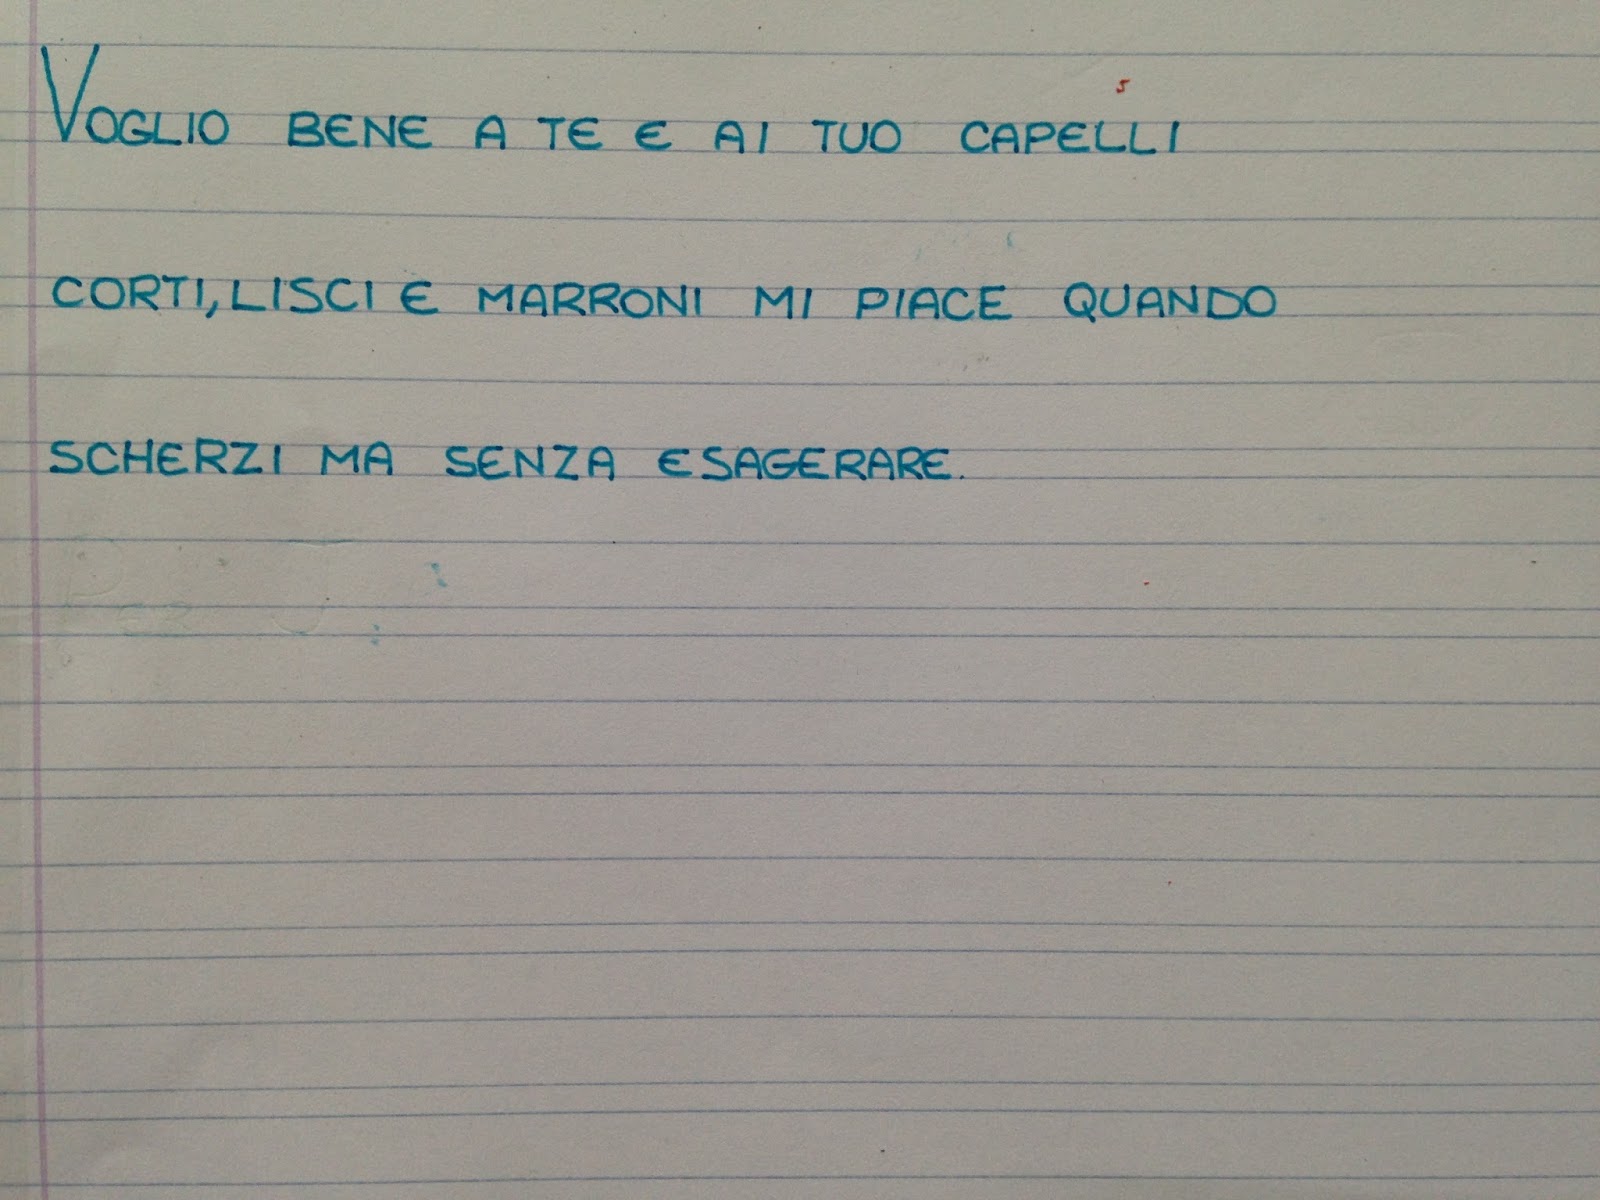 VOGLIO BENE A TE E AI TUO CAPELLI
CORTI, LISCI E MARRONI MI PIACE QUANDO
SCHERZI MA SENZA ESAGERARE.